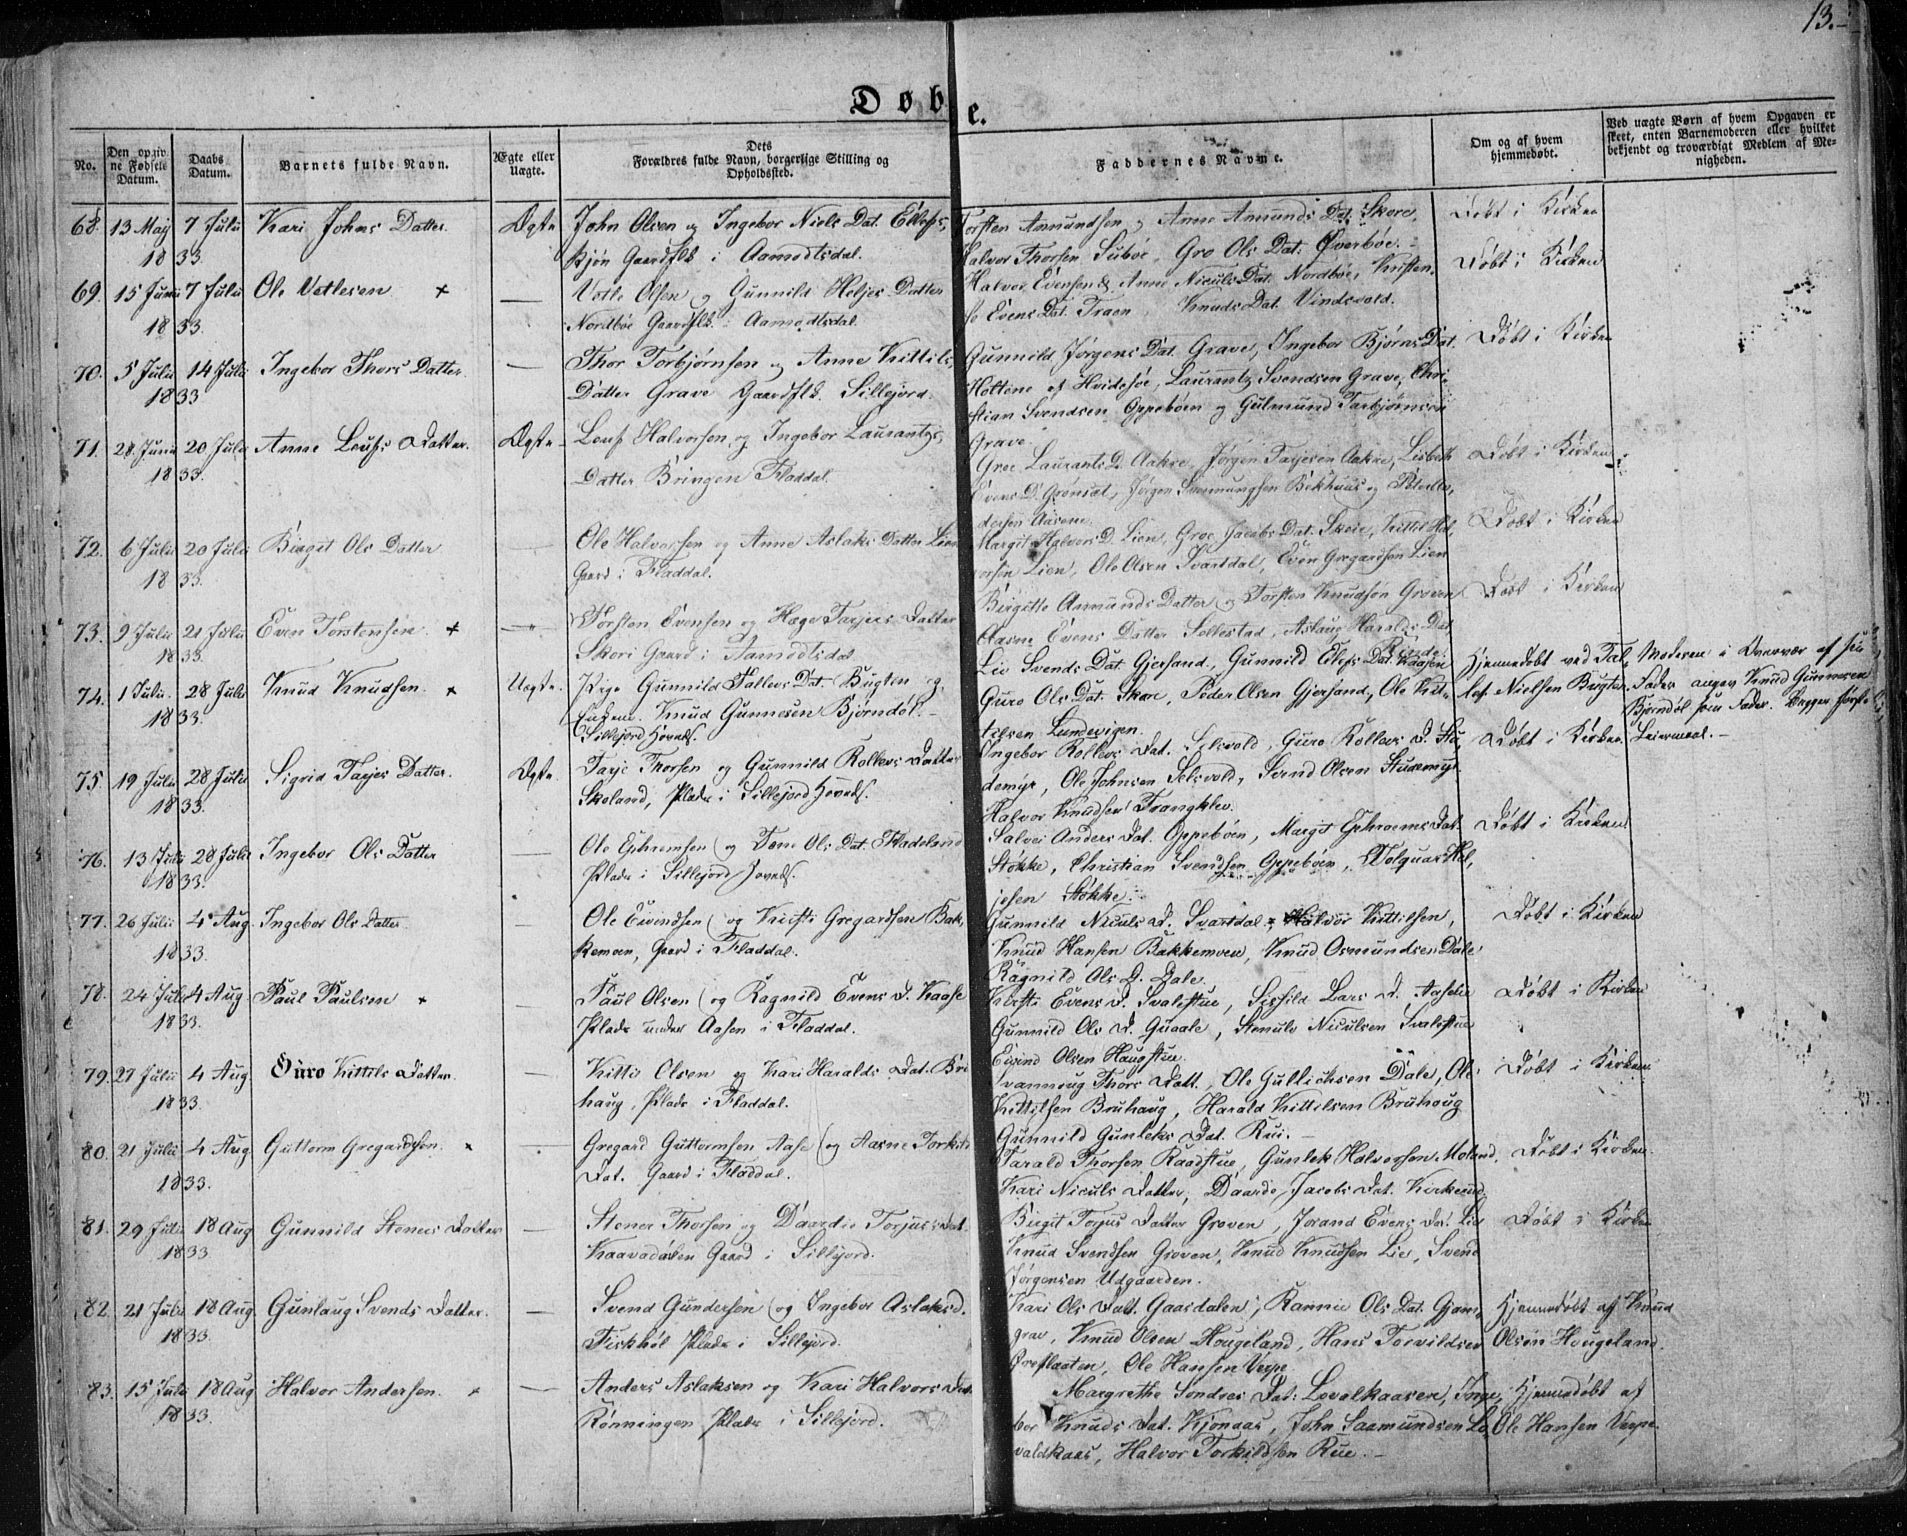 13.
Døbe.
No.
Den opgivne Fødsels Datum.
Daabs Datum.
Barnets fulde Navn.
Ægte eller Uægte.
Dets Forældres fulde Navn, borgerlige Stilling og Opholdssted.
Faddernes Navne.
Om og af hvem hjemmedøbt.
Ved uægte Børn af hvem Opgaven er skeet, enten Barnemoderen eller hvilket bekjendt og troværdigt Medlem af Menigheden.
68. 13 May 1833 7 Julii Kari Johns Datter Ægte
John Olsen og Ingebor Niels Dat.
Gaardflk i Aamodtsdal.
Torsten Amundsen og Anne Amunds Dat. Skore,
Halvor Thorsen Gro Ols Dat. Øverbøe.
Døbt i Kirken
69. 15 Junii 1833. 7 Julii Ole Vetlesen + —
Vetle Olsen og Gunnild Heljes Datter
Nordbøe Gaardflk. i Aamodtsdal.
Halvor Evensen & Anne Niculs Dat. Nordbøe, Kirsten,
Evens Dat. Traen, Knuds Dat. Vindsvold.
Døbt i Kirken
70. 5 Julii 1833 14 Julii Ingebor Thors Datter —
Thor Torbjørnsen og Anne Kittils
Datter Grave Gaardflk. Sillejord.
Gunnild Jørgens Dat. Grave, Ingebor Bjørns Dat.
af Hvidesøe, Laurantz Svendsen Grave, Chri-
stian Svendsen Oppebøen og Gulmund Tarbjørnsen
Grave
Døbt i Kirken
71. 28 Junii 1833. 20 Julii Anne Leufs Datter. Ægte
Leuf Halvorsen og Ingebor Laurantzs
Datter Bringen Fladdal.
Groe Laurants D. Aakre, Jørgen Tarjesen Aakre, Lisbeth
Evens D. Grønset, Jørgen Bekhuus og
Aasene.
Døbt i Kirken
72. 6 Julii 1833. 20 Julii Birgit Ols Datter —
Ole Halvorsen og Anne Aslaks Datter Lien
Gaard i Fladdal.
Margit Halvors D. Lien, Groe Jacobs Dat. Skoie, Kittil Hal-
vorsen Lien, Ole Olsen Svartdal, Even Gregardsen Lien
Døbt i Kirken
73. 9 Julii 1833. 21 Julii Even Torstensen + —
Torsten Evensen og Hæge Tarjeis Datter
Skori Gaard i Aamodtsdal
Birgitte Anmunds Datter og Torsten Knudsøn Groven
Aasne Evens Datter Sollestad, Aslaug Haralds Dat.
Rinde.
Døbt i Kirken
74. 1 Julii 1833. 28 Julii Knud Knudsen + Uægte.
Pige Gunnild Tallevs Dat. Bugten og
Knud Gunnesen Bjørndøl.
Sillejord Hoveds.
Liv Svends Dat Gjersand, Gunnild Edlefs Dat. Kaasen
Guro Ols Dat. Skore, Peder Olsen Gjersand, Ole Kit-
tilsen Lundevigen.
Hjemmedøbt ved Tal-
lef Nielsen Bugten
Moderen i Overvær af sin
Fader angav Knud Gunnesen
Bjørndøl som Fader. Begges første
Leiermaal.
75. 19 Julii 1833. 28 Julii Sigrid Tarjes Datter. Ægte
Tarje Thorsen og Gunnild Rollevs Datter
Skoland, Plads i Sillejord Hoveds.
Ingebor Rollevs Dat. Selsvold, Guro Rollevs D. Stu-
demyr, Ole Johnsen Selsvold, Svend Olsen Studemyr
Halvor Knudsen Trangklev.
Døbt i Kirken
76. 13 Julii 1833. 28 Julii Ingebor Ols Datter
Ole Ephremsen og Tone Ols Dat. Fladeland
Plads i Sillejord Hoveds.
Salvei Anders Dat. Oppebøen, Margit Ephraems Dat.
Støkke, Christian Svendsen Oppebøen, Hel-
jesen Støkke.
Døbt i Kirken
77. 26 Julii 1833. 4 Aug. Ingebor Ols Datter
Ole Eivendsen og Kirsti Gregardsen Bak-
kemoen, Gaard i Fladdal.
Gunnild Niculs D. Svartdal, Halvor Kittilsen,
Knud Hansen Bakkemoen, Knud Osmundsen Dale
Ragnild Ols D. Dale.
Døbt i Kirken
78. 24 Julii 1833. 4 Aug Paul Paulsen + —
Paul Olsen og Ragnild Evens D. Kaase
Plads under Aasen i Fladdal.
Kirsti Evens D. Svalestue, Lars D.
Gunnild Ols D. Niculsen Svalestue
Eivind Olsen Haugstue.
Døbt i Kirken
79. 27 Julii 1833. 4 Aug. Guro Kittils Datter. —
Kittil Olsen og Kari Haralds Dat. Bru-
haug, Plads i Fladdal.
Thors Datt., Ole Gullichsen Dale, Ole
Kittilsen Bruhaug, Harald Kittilsen Bruhaug
Gunnild Gunleks Dat. Rui.
Døbt i Kirken
80. 21 Julii 1833. 4 Aug Guttorm Gregardsen. +
Gregard Guttormsen Aase og Aasne Torkils
Dat. Gaard i Fladdal.
Tarald Thorsen Raadstue, Gunlek Halvorsen Moland,
Kari Niculs Datter, Daarde Jacobs Dat. Kirkeund
Døbt i Kirken
81. 29 Julii 1833. 18 Aug Gunnild Steners Datter —
Stener Thorsen og Daardie Torjuss Dat.
Kaavadalen Gaard i Sillejord.
Birgit Torjus Datter Groven, Jorand Evens Dat. Lie
Knud Svendsen Groven, Knud Knudsen Lie, Svend
Jørgensen Udgaarden.
Døbt i Kirken
82. 21 Julii 1833. 18 Aug. Gunlaug Svends Datter. —
Svend Gundersen og Ingebor Aslaks D.
Fiskhøl Plads i Sillejord.
Kari Ols Datt. Gaasdalen, Rannie Ols Dat.
Knud Olsen Hougeland, Hans Torvildsen
Ole Hansen Verpe
Hjemmedøbt af Knud
Olsøn Hougeland.
83. 15 Julii 1833. 18 Aug Halvor Andersen + —
Anders Aslaksen og Kari Halvors Dat
Rønningen Plads i Sillejord.
Margrethe Sondres Dat. Lovalkaasen, Inge-
bor Knuds Dat. Kjønaas, John Saamundsen Lo-
valdkaas, Halvor Torkildsen Rue.
Hjemmedøbt af
Ole Hansen Verpe.